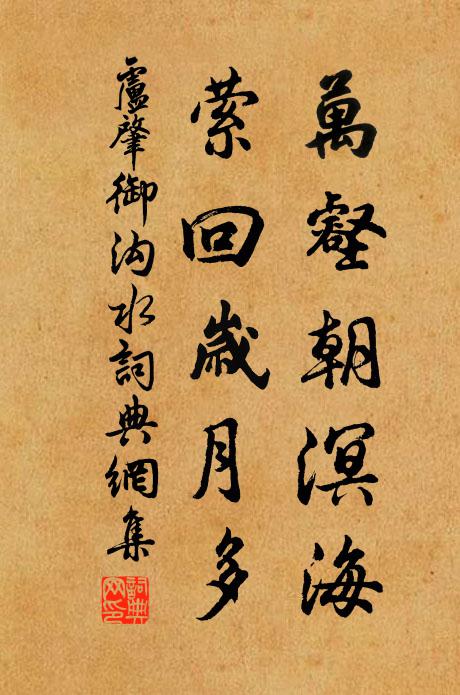 萬壑朝溟海
萦回歲月多
盧肇御沟水詞典網集
詞典网印